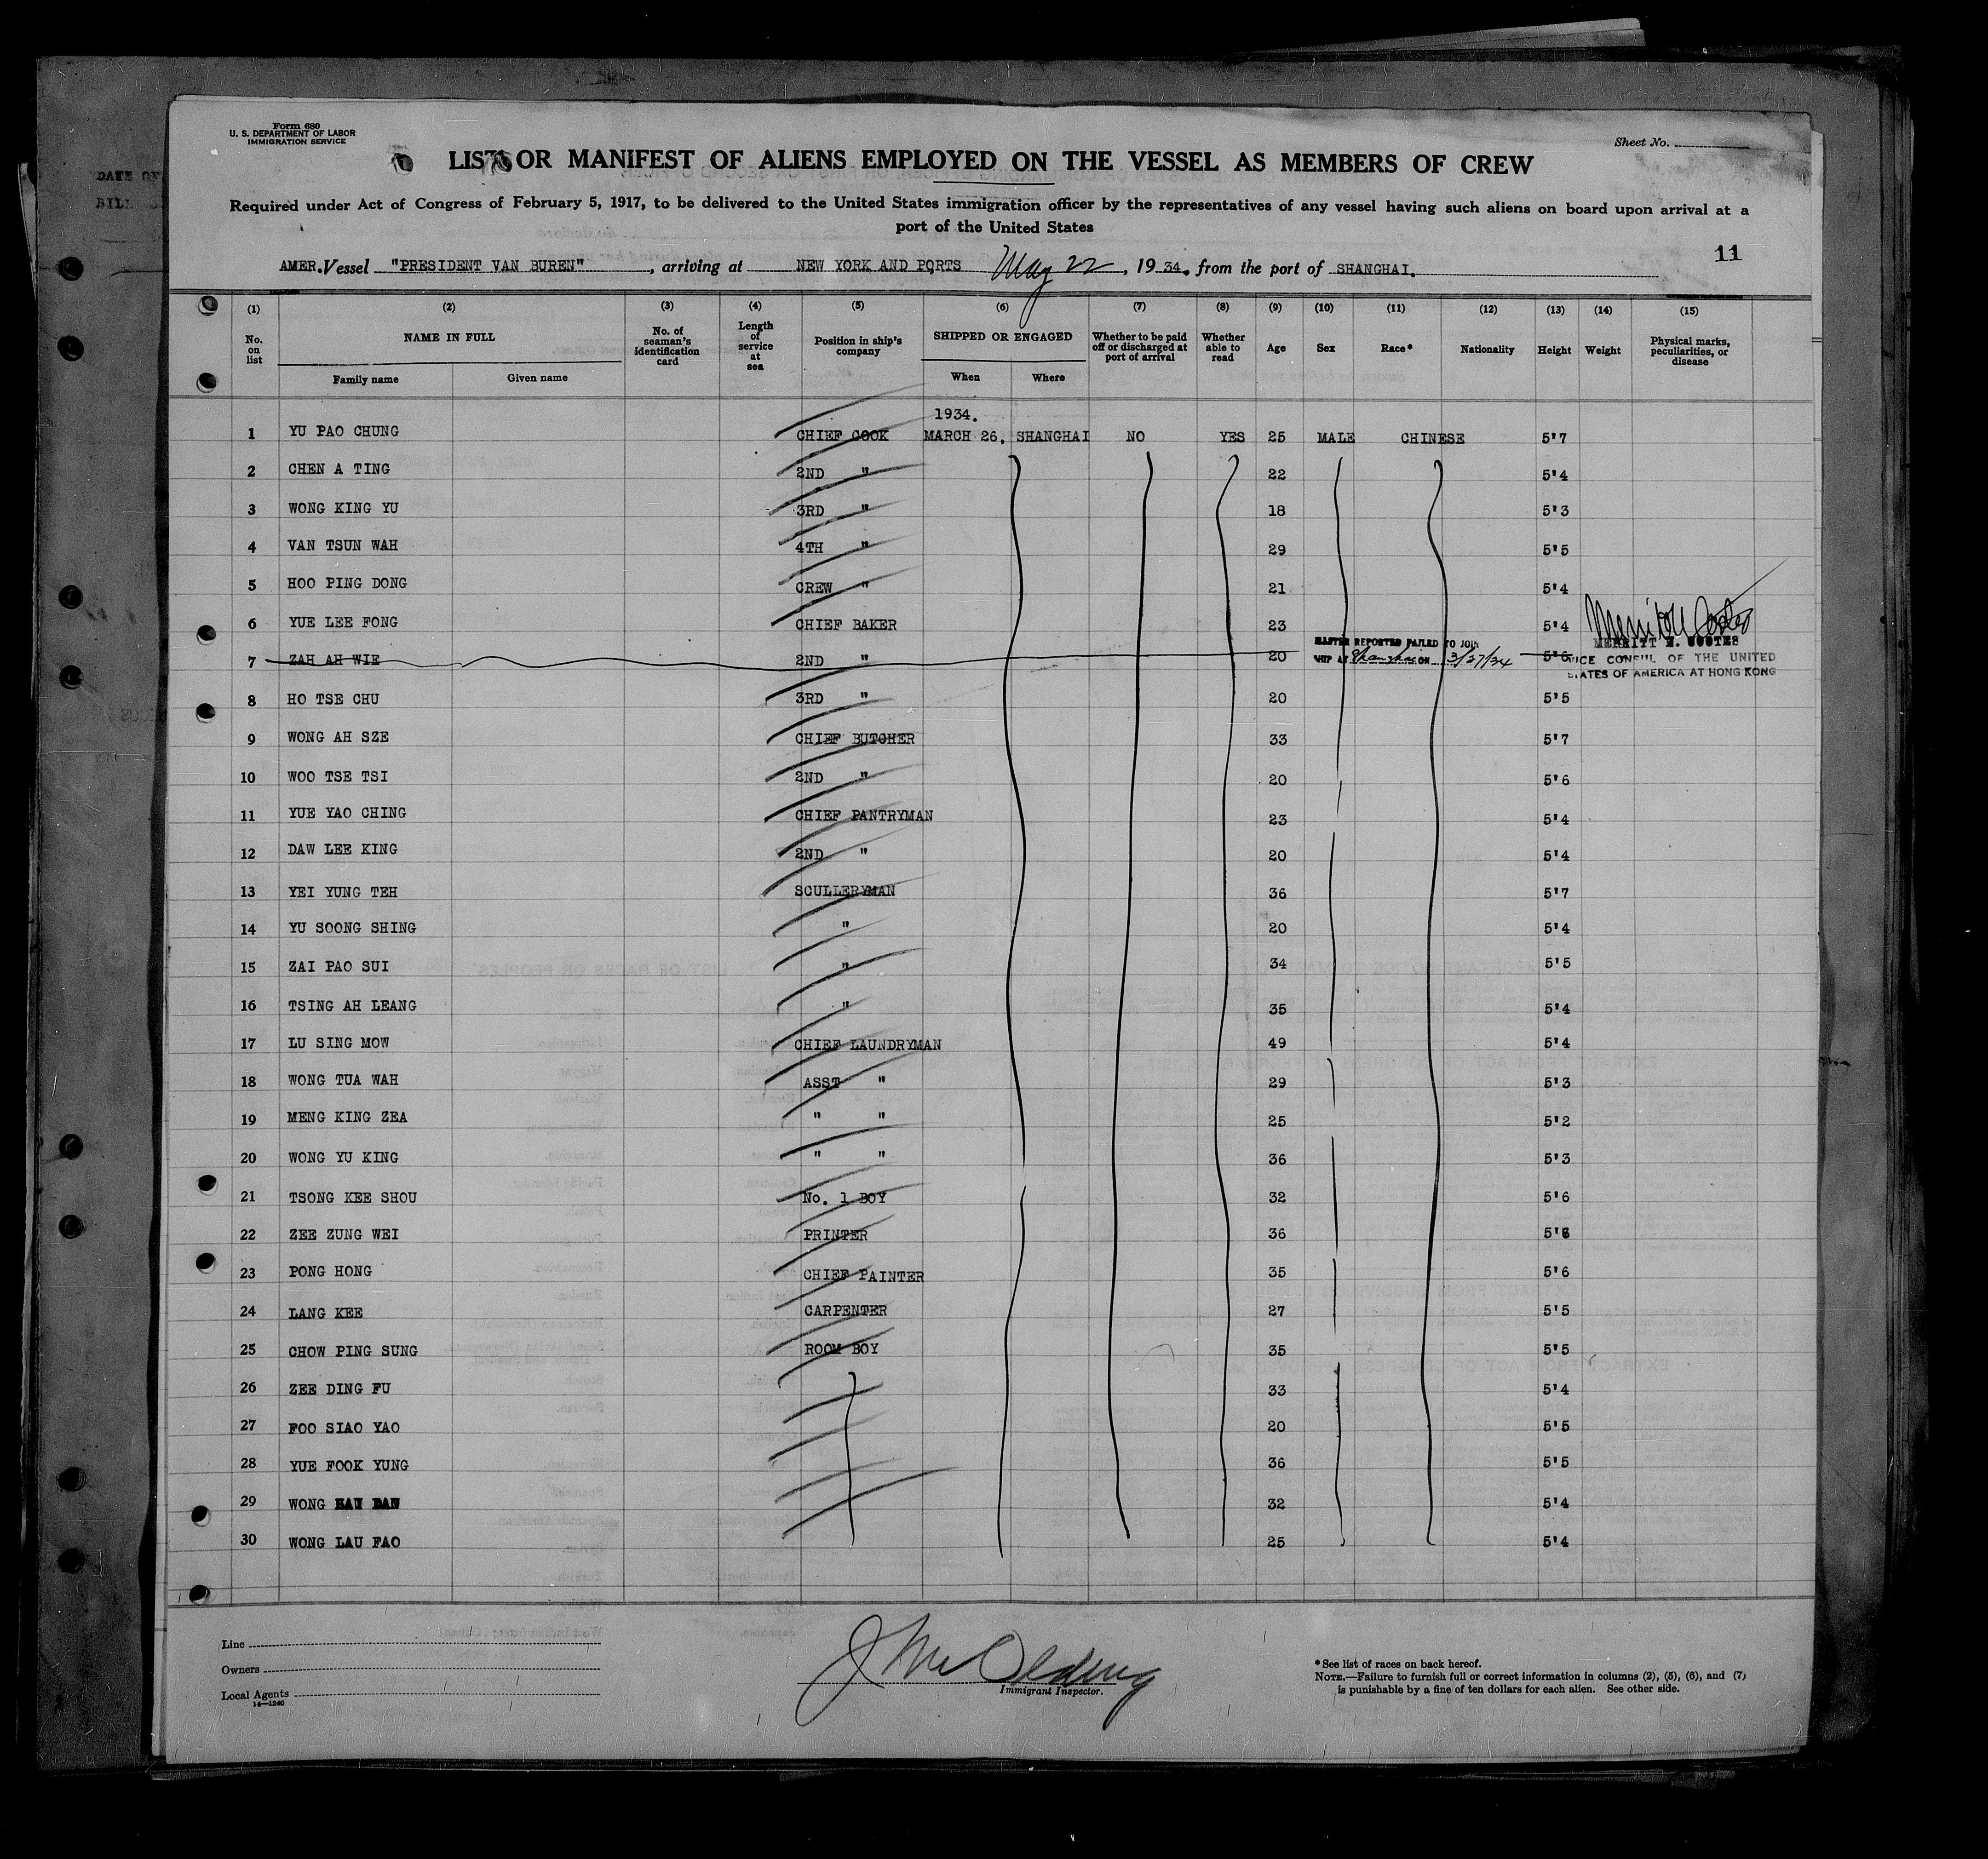 Form 680
U. S. DEPARTMENT OF LABOR
IMMIGRATION SERVICE
Sheet No.
LIST OR MANIFEST OF ALIENS EMPLOYED ON THE VESSEL AS MEMBERS OF CREW
Required under Act of Congress of February 5, 1917, to be delivered to the United States immigration officer by the representatives of any vessel having such aliens on board upon arrival at a
port of the United States
11
AMER. Vessel "PRESIDENT VAN BUREN", arriving at NEW YORK AND PORTS May 22, 1934. from the port of SHANGHAI.
(1) (2) (3) (4) (5) (6) (7) (8) (9) (10) (11) (12) (13) (14) (15)
No. on list NAME IN FULL Family name Given name No. of seaman's identification card Length of service at sea Position in ship's company SHIPPED OR ENGAGED When Where Whether to be paid off or discharged at port of arrival Whether able to read Age Sex Race* Nationality Height Weight Physical marks, peculiarities, or disease
1934.
1 YU PAO CHUNG CHIEF COOK MARCH 26. SHANGHAI NO YES 25 MALE CHINESE 5'7
2 CHEN A TING 2ND " 22 5'4
3 WONG KING YU 3RD " 18 5'3
4 VAN TSUN WAH 4TH " 29 5'5
5 HOO PING DONG CREW " 21 5'4
6 YUE LEE FONG CHIEF BAKER 23 5'4
MASTER REPORTED FAILED TO JOIN
SHIP AT Shanghai ON 3/27/34
7 ZAH AH WIE 2ND " 20 5'6
MERRITT N. COOTES
VICE CONSUL OF THE UNITED
STATES OF AMERICA AT HONG KONG
8 HO TSE CHU 3RD " 20 5'5
9 WONG AH SZE CHIEF BUTCHER 33 5'7
10 WOO TSE TSI 2ND " 20 5'6
11 YUE YAO CHING CHIEF PANTRYMAN 23 5'4
12 DAW LEE KING 2ND " 20 5'4
13 YEI YUNG TEH SCULLERYMAN 36 5'7
14 YU SOONG SHING " 20 5'4
15 ZAI PAO SUI " 34 5'5
16 TSING AH LEANG " 35 5'4
17 LU SING MOW CHIEF LAUNDRYMAN 49 5'4
18 WONG TUA WAH ASST " 29 5'3
19 MENG KING ZEA " " 25 5'2
20 WONG YU KING " " 36 5'3
21 TSONG KEE SHOU No. 1 BOY 32 5'6
22 ZEE ZUNG WEI PRINTER 36 5'6
23 PONG HONG CHIEF PAINTER 35 5'6
24 LANG KEE CARPENTER 27 5'5
25 CHOW PING SUNG ROOM BOY 35 5'5
26 ZEE DING FU 33 5'4
27 FOO SIAO YAO 20 5'5
28 YUE FOOK YUNG 36 5'5
29 WONG 32 5'4
30 WONG LAU FAO 25 5'4
Line
Owners
Local Agents
14—1240
Immigrant Inspector.
*See list of races on back hereof.
NOTE.—Failure to furnish full or correct information in columns (2), (5), (6), and (7)
is punishable by a fine of ten dollars for each alien. See other side.